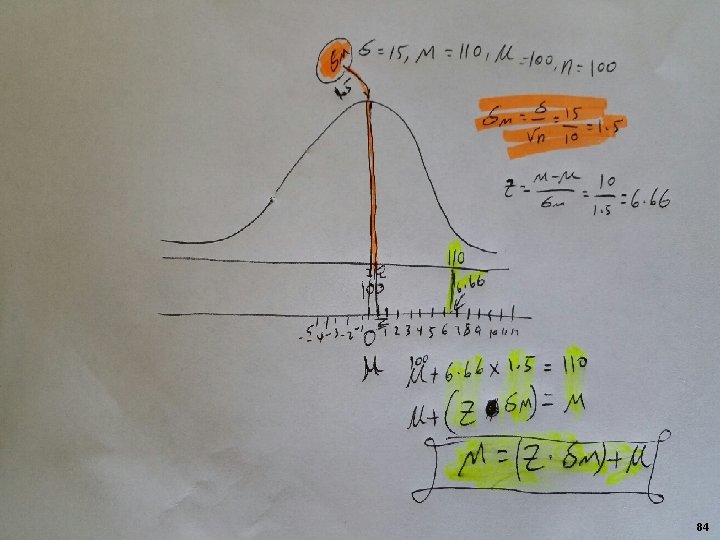 σM σ=15, M=110, μ=100, n=100
1.5
σM = σ/√n = 15/10 = 1.5
Z = M-μ/σM = 10/1.5 = 6.66
110
100
6.66
-5 -4 -3 -2 -1 0 1 2 3 4 5 6 7 8 9 10 11 12
μ
100
μ + 6.66 × 1.5 = 110
μ + (Z · σM) = M
M = (Z · σM) + μ
84